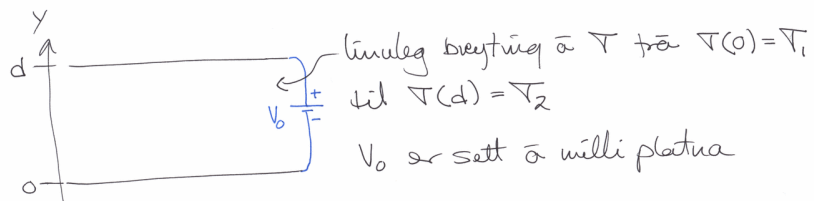 y
d
línuleg breyting á σ frá σ(0)=σ₁
til σ(d)=σ₂
V₀
+
-
V₀ er sett á milli platna
0